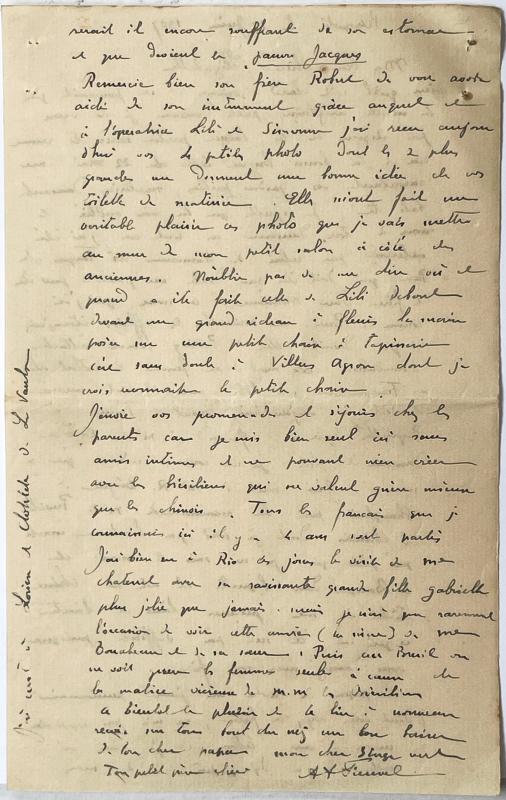 serait il encore souffrant de son estomac
et que devient le pauvre Jacques
Remercie bien son frère Robert de vous avoir
aidé de son instrument grâce auquel et
à l'opératrice Lili et Simonne j'ai reçu aujour
d'hui vos 4 petites photo dont les 2 plus
grandes me donnent une bonne idée de vos
toilette de matinée. Elles m'ont fait un
véritable plaisir ces photo que je vais mettre
au mur de mon petit salon à côté des
anciennes. N'oublie pas de me dire où et
quand a été fait celle de Lili debout
devant un grand rideau à fleurs la main
posée sur une petite chaise à tapisserie
c'est sans doute à Villers Agron dont je
crois reconnaître la petite chaise.
J'envie vos promenades et séjours chez les
parents car je suis bien seul ici sans
amis intimes et ne pouvant rien créer
avec les brésiliens qui ne valent guère mieux
que les chinois. Tous les français que j
connaissais ici il y a 4 ans sont partis
J'ai bien eu à Rio ces jours la visite de me
chatenet avec sa ravissante grande fille gabrielle
plus jolie que jamais. mais je n'ai que rarement
l'occasion de voir cette année (la sienne) de me
et de sa sœur. Puis au Brésil on
ne voit guère les femmes seules à cause de
la malice vicieuse de m.m les brésiliens
a bientôt le plaisir de te lire à nouveau
reçois sur ton bout du nez un bon baiser
de ton cher papa mon cher
Ton petit père chéri A
à Lucien et Clotilde de